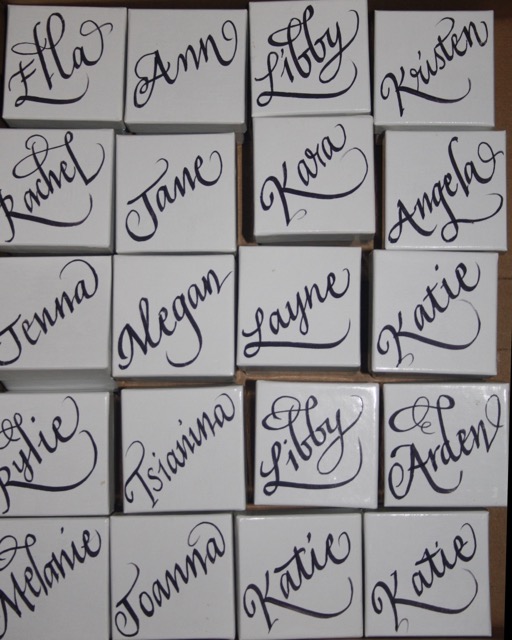 Ella
Ann
Libby
Kristen
Rachel
Jane
Kara
Angela
Jenna
Megan
Layne
Katie
Rylie
Tsianina
Libby
Arden
Melanie
Joanna
Katie
Katie